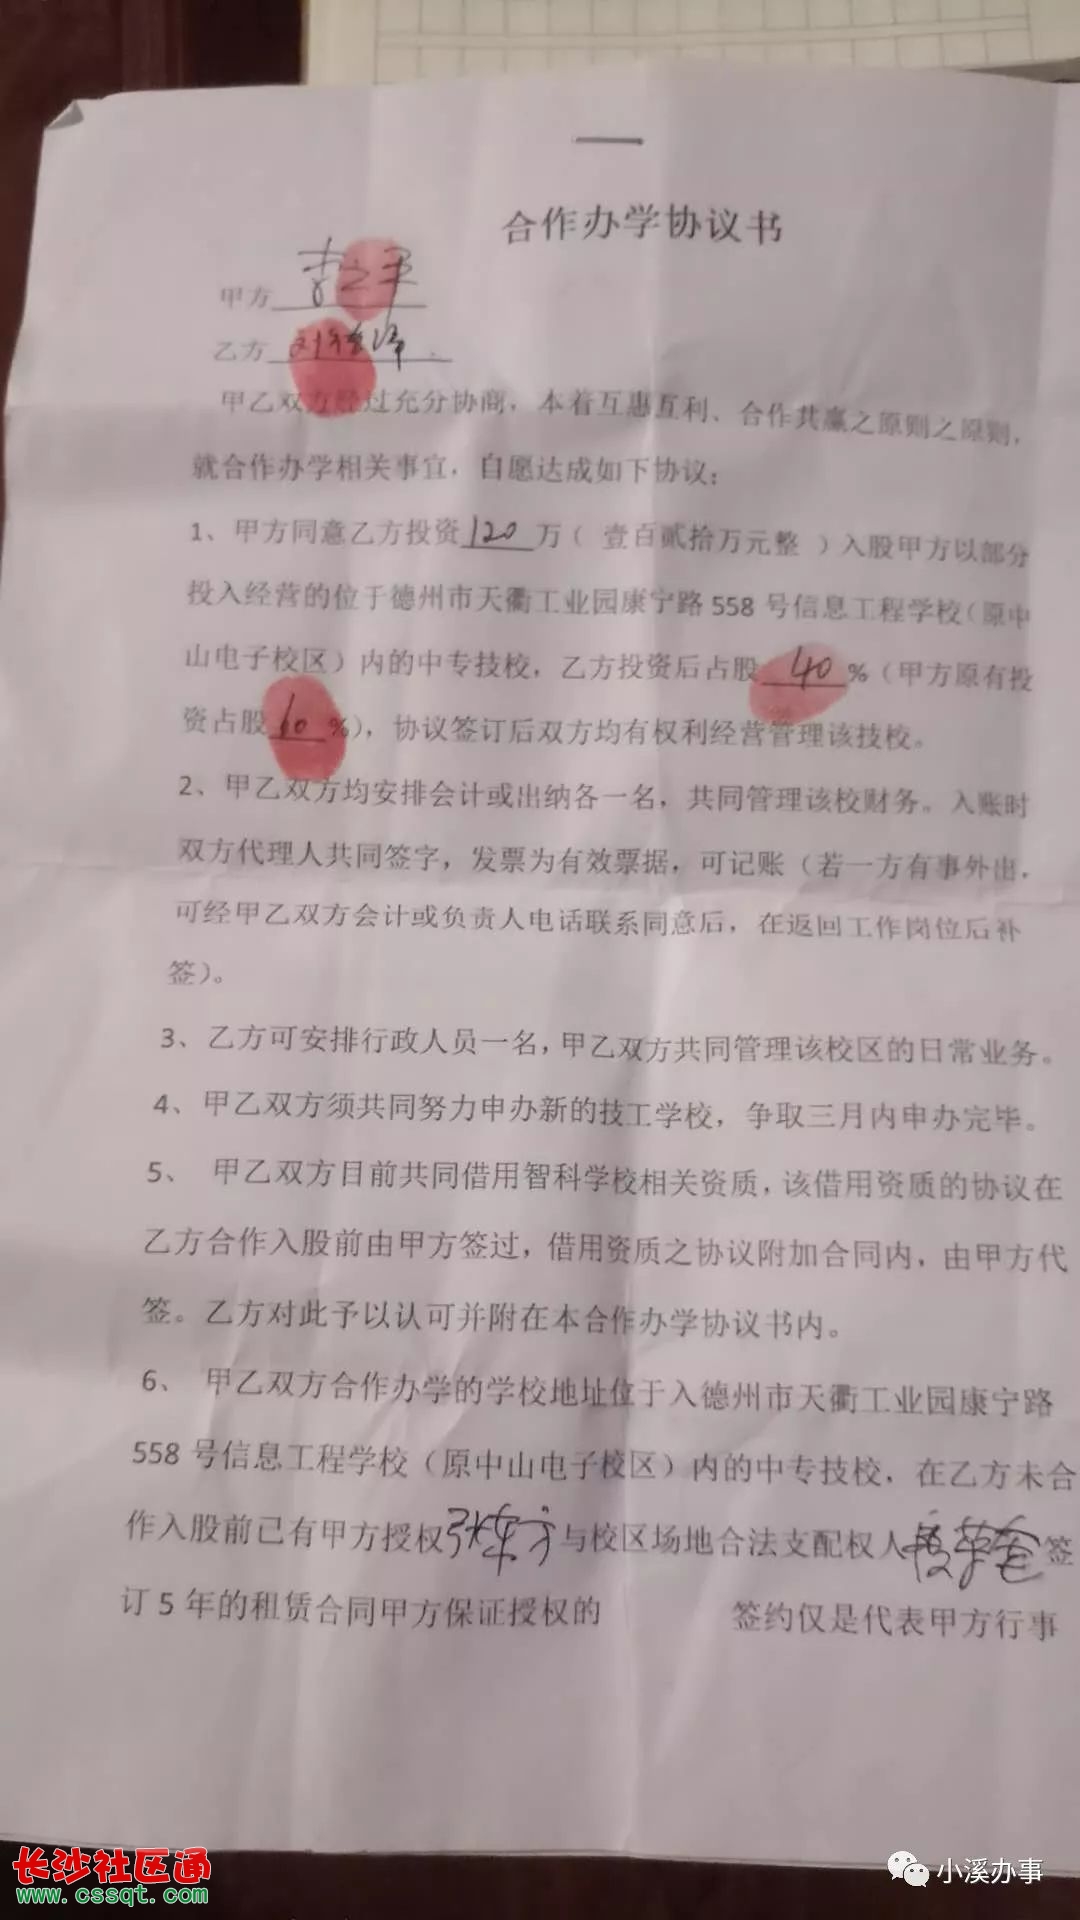 合作办学协议书
甲方
乙方
甲乙双方经过充分协商，本着互惠互利、合作共赢之原则之原则，
就合作办学相关事宜，自愿达成如下协议：
1、甲方同意乙方投资120万（ 壹百贰拾万元整 ）入股甲方以部分
投入经营的位于德州市天衢工业园康宁路 558 号信息工程学校（原中
山电子校区）内的中专技校，乙方投资后占股40%（甲方原有投
资占股60%），协议签订后双方均有权利经营管理该技校。
2、甲乙双方均安排会计或出纳各一名，共同管理该校财务。入账时
双方代理人共同签字，发票为有效票据，可记账（若一方有事外出，
可经甲乙双方会计或负责人电话联系同意后，在返回工作岗位后补
签）。
3、乙方可安排行政人员一名，甲乙双方共同管理该校区的日常业务。
4、甲乙双方须共同努力申办新的技工学校，争取三月内申办完毕。
5、 甲乙双方目前共同借用智科学校相关资质，该借用资质的协议在
乙方合作入股前由甲方签过，借用资质之协议附加合同内，由甲方代
签。乙方对此予以认可并附在本合作办学协议书内。
6、 甲乙双方合作办学的学校地址位于入德州市天衢工业园康宁路
558 号信息工程学校（原中山电子校区）内的中专技校，在乙方未合
作入股前已有甲方授权张东方与校区场地合法支配权人签
订 5 年的租赁合同甲方保证授权的 签约仅是代表甲方行事
长沙社区通
www.cssqt.com
小溪办事